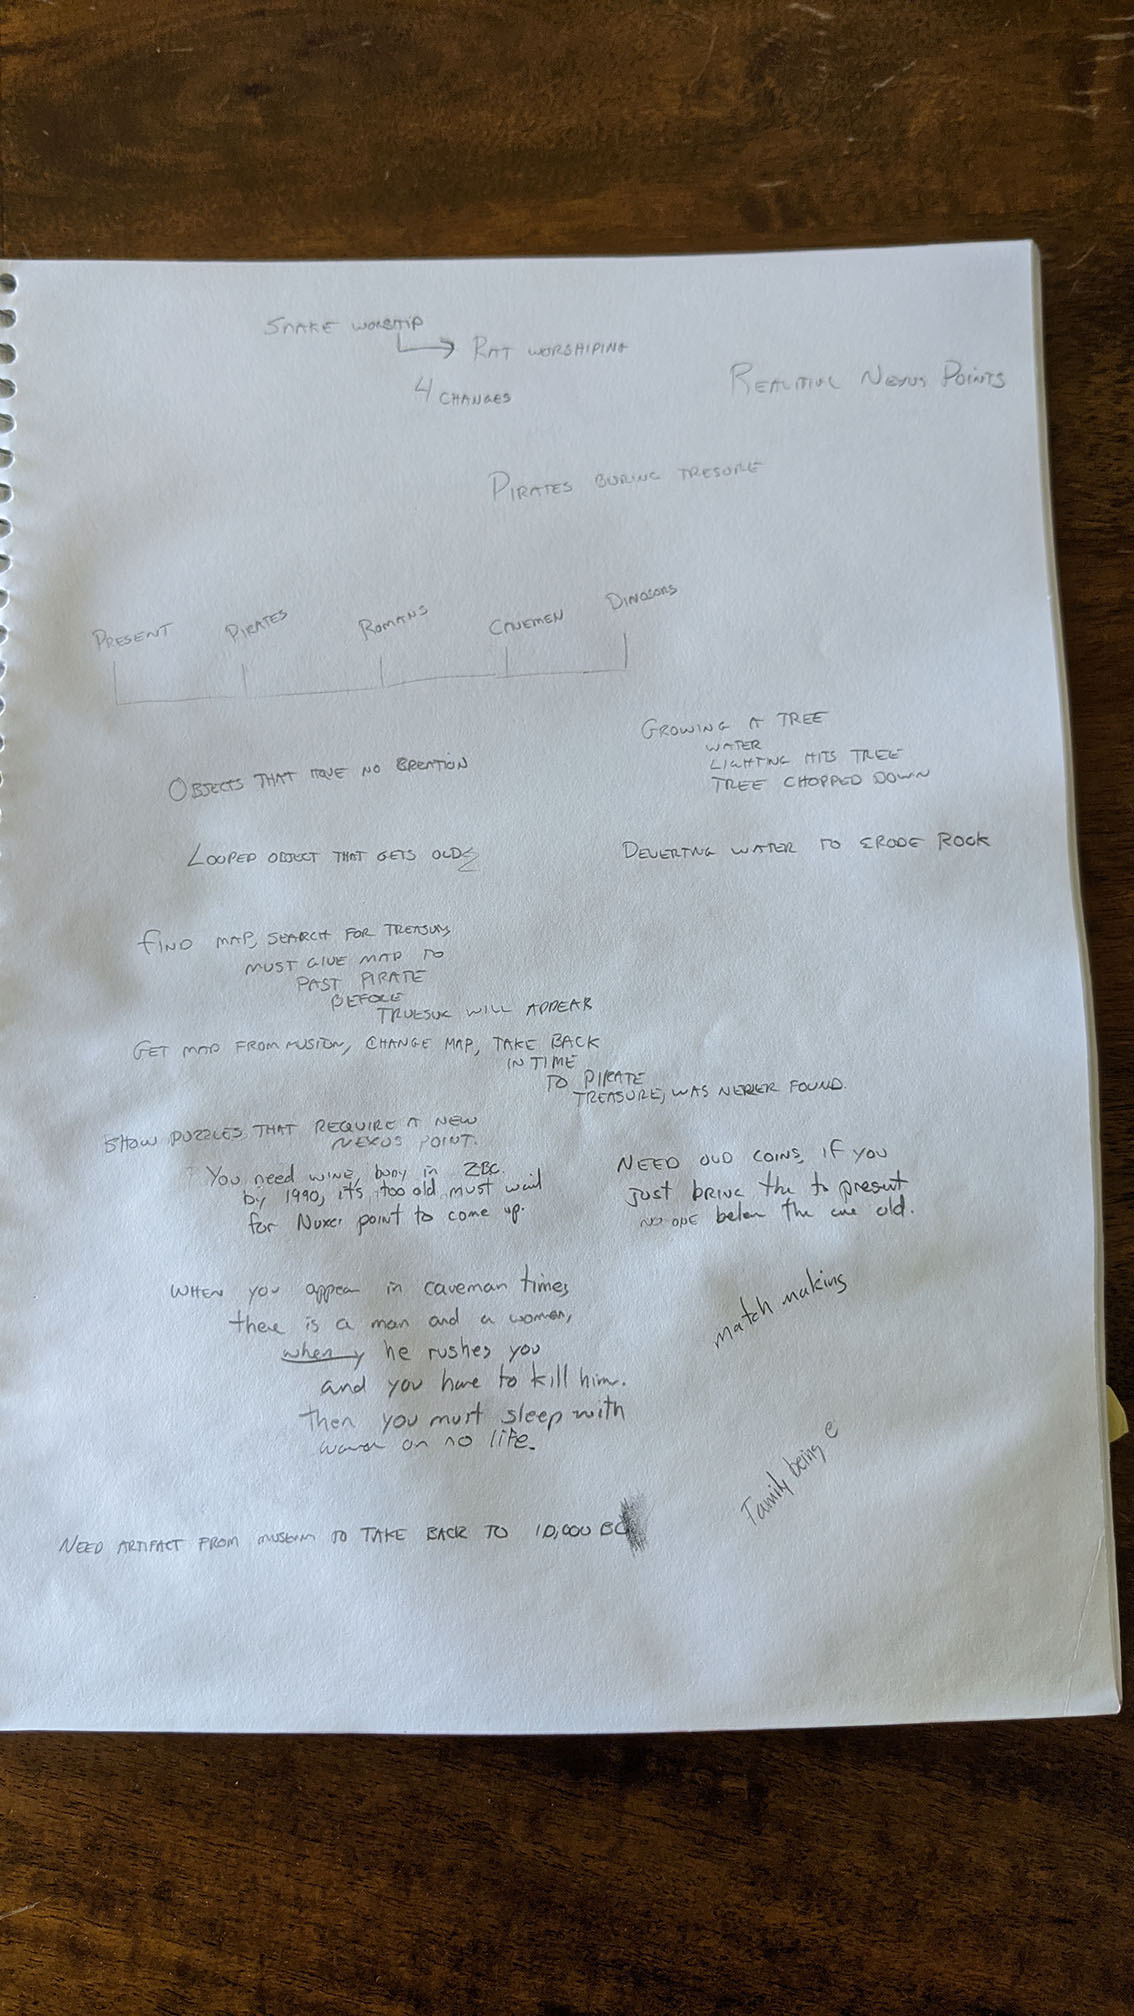 SNAKE WORSHIP
RAT WORSHIPING
4 CHANGES
NEXUS POINTS
PIRATES BURING TRESORE
PRESENT PIRATES ROMANS CAVEMEN DINOSORS
GROWING A TREE
WATER
LIGHTING HITS TREE
TREE CHOPPED DOWN
OBJECTS THAT HAVE NO CREATION
LOOPED OBJECT THAT GETS OLD
DEVERTING WATER TO ERODE ROCK
FIND MAP, SEARCH FOR
MUST GIVE MAP TO
PAST PIRATE
BEFORE
WILL APPEAR
GET MAP FROM CHANGE MAP, TAKE BACK
IN TIME
TO PIRATE
TREASURE, WAS NEVER FOUND.
SHOW PUZZLES THAT REQUIRE A NEW
NEXUS POINT.
You need wine, bury in 2BC.
by 1990, it's too old, must wait
for point to come up.
NEED OLD COINS, IF YOU
Just BRING the to present
NO ONE the are old.
WHEN you appear in caveman times
there is a man and a women,
when he rushes you
and you have to kill him.
Then you must sleep with
on no life.
match making
Family being e
NEED ARTIFACT FROM MUSEUM TO TAKE BACK TO 10,000 BC